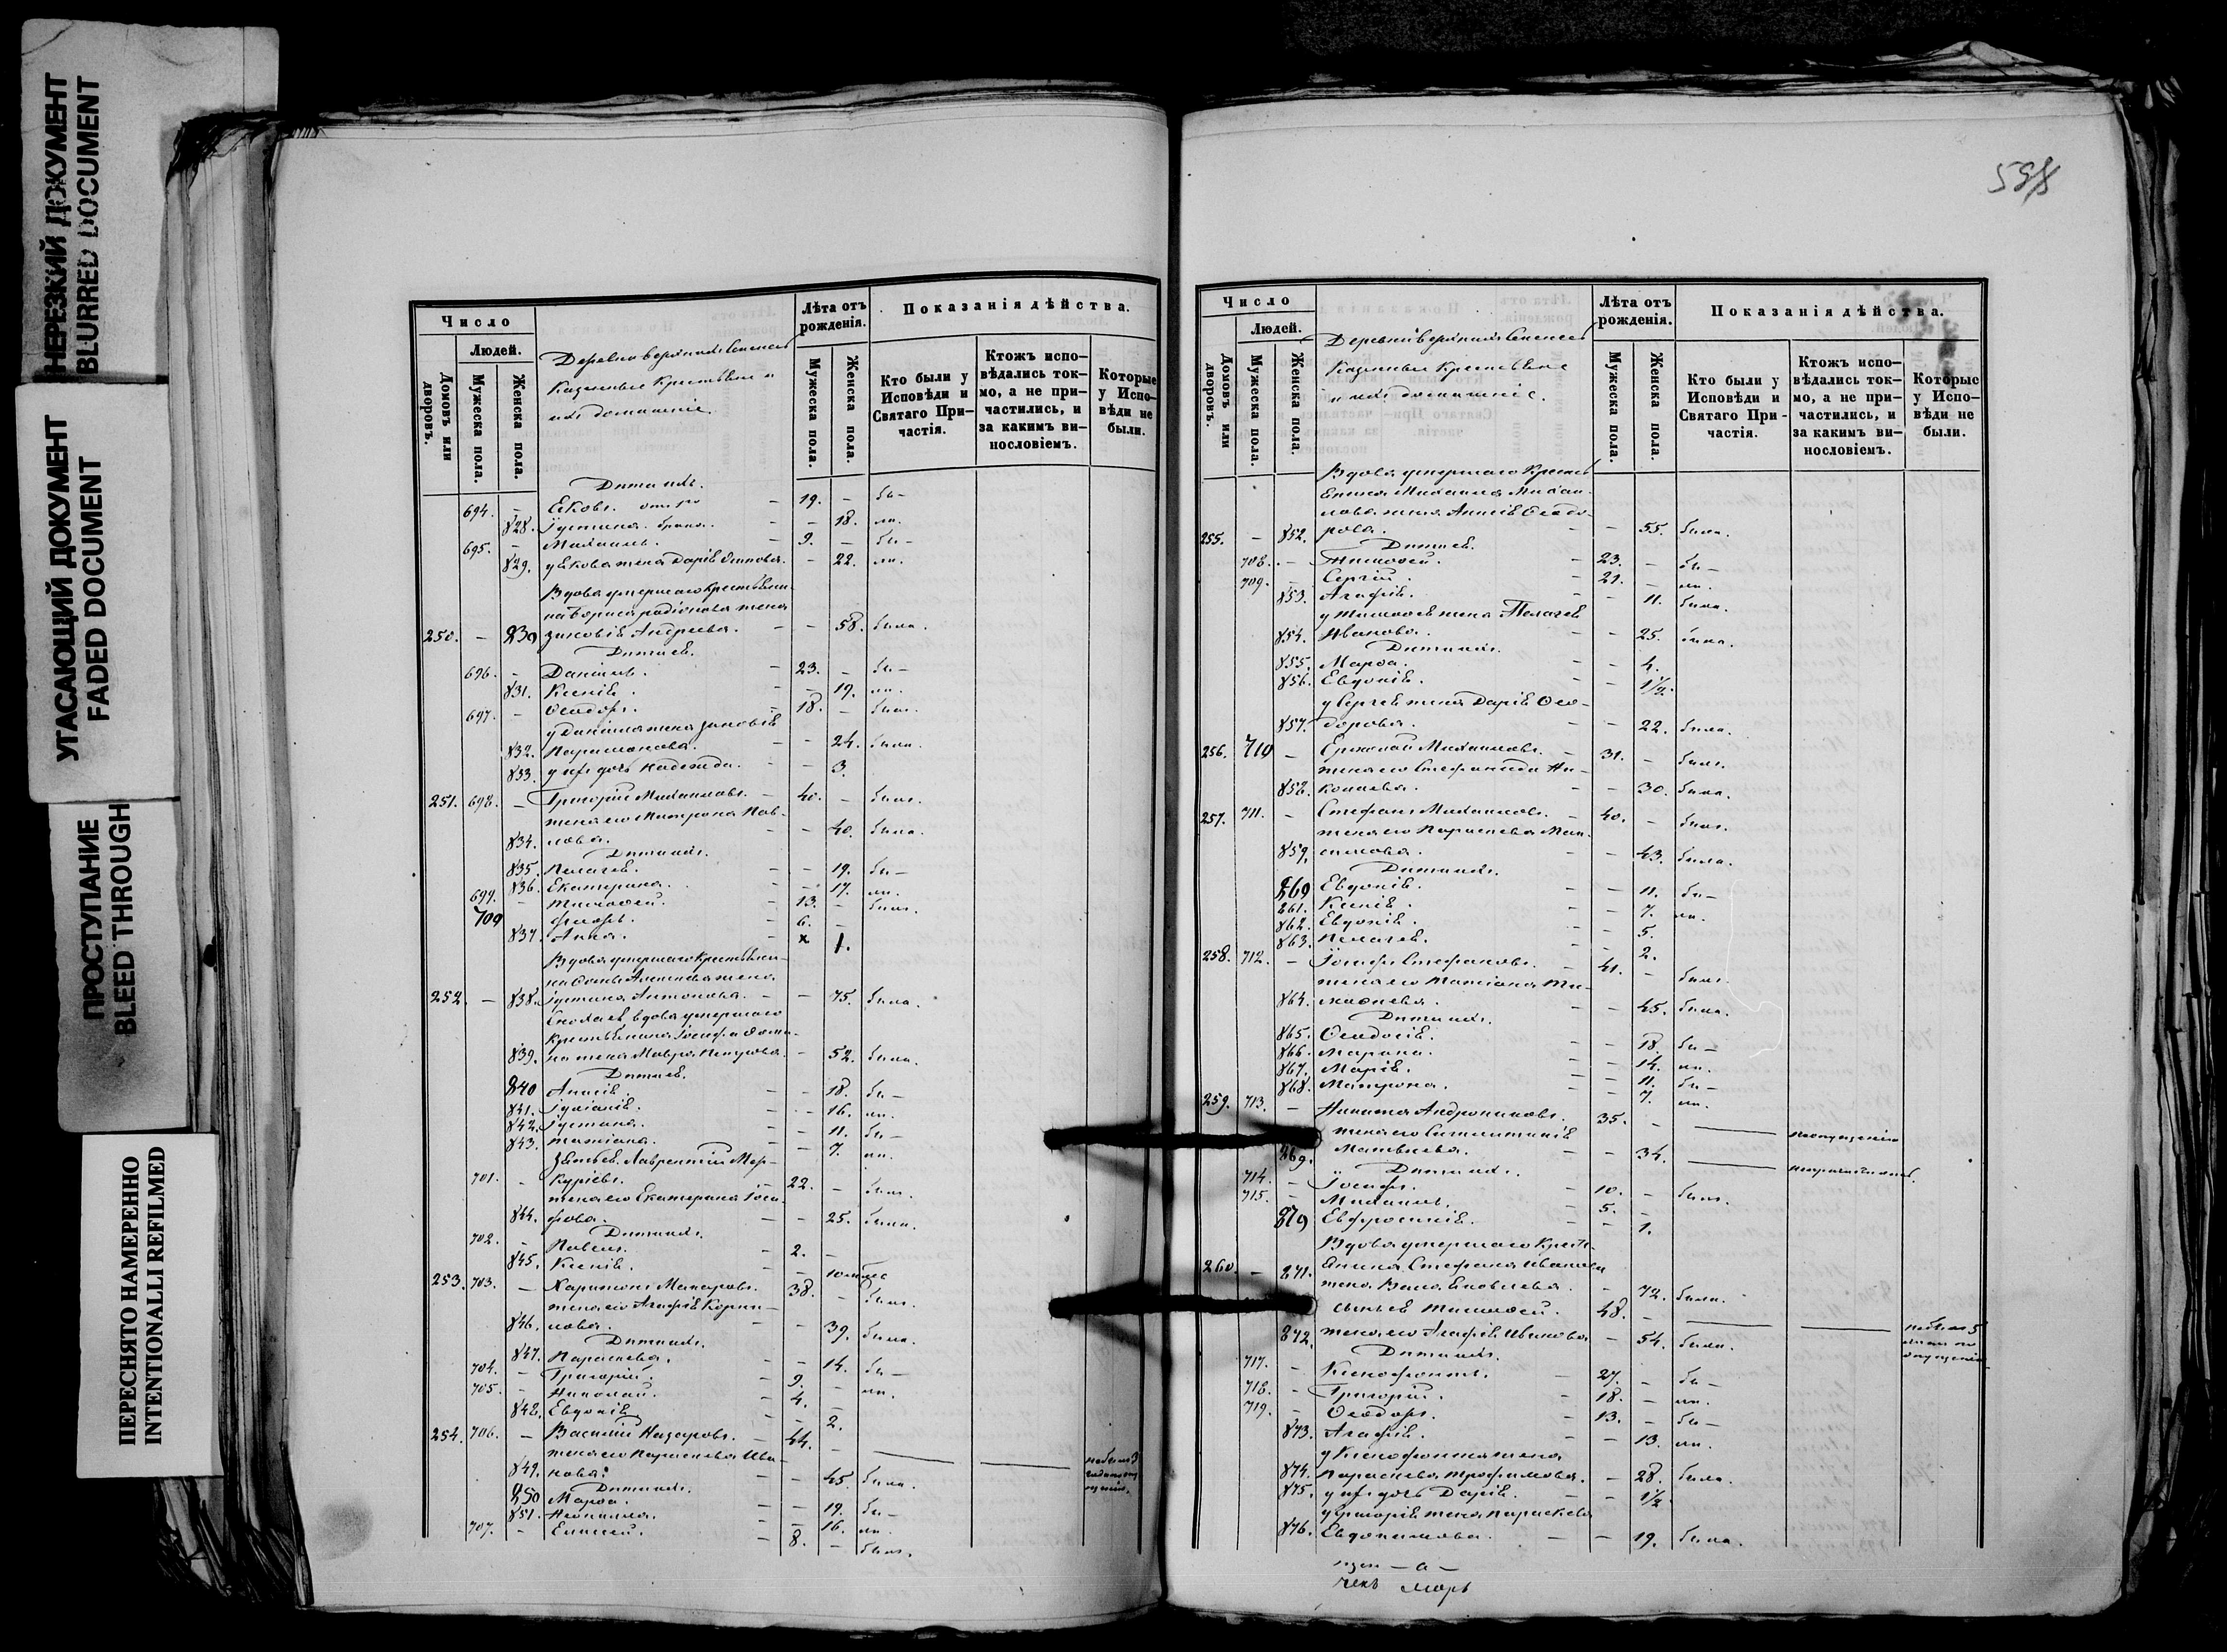 НЕРЕЗКИЙ ДОКУМЕНТ
BLURRED DOCUMENT
УГАСАЮЩИЙ ДОКУМЕНТ
FADED DOCUMENT
ПРОСТУПАНИЕ
BLEED THROUGH
ПЕРЕСНЯТО НАМЕРЕННО
INTENTIONALLI REFILMED
Число
Людей.
Домовъ или дворовъ.
Мужеска пола.
Женска пола.
Казенные Крестьяне и
ихъ домашніе.
Лѣта отъ рожденія.
Мужеска пола.
Женска пола.
Показанія дѣйства.
Кто были у Исповѣди и Святаго Причастія.
Ктожъ исповѣдались токмо, а не причастились, и за какимъ винословіемъ.
Которые у Исповѣди не были.
Дѣти ихъ.
694. - 19. - бы-
828. Іустина - 18. ли.
695. - Михаилъ. 9. - бы-
829. жена Дарія - 22. ли.
Вдова умершаго крестьяни-
на Бориса Радіонова жена
250. - 830 Зиновія Андреева. - 58. была.
Дѣти ея.
696. - Даніилъ. 23. - бы-
831. Ксенія. - 19. ли.
697. - Ѳеодоръ. 18. - былъ.
у Даніила жена Зиновія
832. - 24. была.
833. у нихъ дочь Надежда. - 3.
251. 698. - Григорій Михаиловъ. 40. - былъ.
жена его Матрона Пав-
834. лова. - 40. была.
Дѣти ихъ.
835. Пелагея. - 19. бы-
836. Екатерина. - 17. ли.
699. - Тимоѳей. 13. - былъ.
700 6. -
837. Анна. х 1.
Вдова умершаго Крестьяни-
на жена
252. - 838. Іустина Антонова. - 75. была.
вдова умершаго
крестьянина Іосифа
839. на жена Мавра Петрова. - 52. была.
Дѣти ея.
840 Анисія. - 18. бы-
841. Іуліанія. - 16. ли.
842. Іустина. - 11. бы-
843. Татіана. - 7. ли.
Зять ея Лаврентій Мер-
701. - куріевъ. 22. - былъ.
жена его Екатерина Іоси-
844. фова. - 25. была.
Дѣти ихъ.
702. - Павелъ. 2. -
845. Ксенія. -
253. 703. - Харитонъ Макаровъ. 38. - былъ.
жена его Агафія Корни-
846. лова. - 39. была.
Дѣти ихъ.
847. Параскева. - 14. бы-
704. - Григорій. 9. - ли.
705. - Николай. 4. -
848. Евдокія - 2.
254. 706. - Василій Назаровъ. 44. -
жена его Параскева Ива-
849. нова. - 45. была.
Дѣти ихъ.
850 Марѳа. - 19. бы-
851. Неонилла. - 16. ли.
707. - Елисей. 8. - былъ.
Число
Людей.
Домовъ или дворовъ.
Мужеска пола.
Женска пола.
Казенные Крестьяне
и ихъ домашніе.
Лѣта отъ рожденія.
Мужеска пола.
Женска пола.
Показанія дѣйства.
Кто были у Исповѣди и Святаго Причастія.
Ктожъ исповѣдались токмо, а не причастились, и за какимъ винословіемъ.
Которые у Исповѣди не были.
Вдова умершаго Кресть
янина Михаила Михаи-
лова жена Анисія Ѳеодо-
255. - 852. рова. - 55. была.
Дѣти ея.
708. - Тимоѳей. 23. - бы-
709. - Сергій. 21. - ли.
853. Агафія. - 11. была.
у Тимоѳея жена Пелагея
854. Иванова. - 25. была.
Дѣти ихъ.
855. Марѳа. - 4.
856. Евдокія. - 1½.
у Сергея жена Дарія Ѳео-
857. дорова. - 22. была.
256. 710 - Ермолай Михаиловъ. 31. - былъ.
жена его Стефанида Ни-
858. - 30. была.
257. 711. - Стефанъ Михаиловъ. 40. - былъ.
жена его Параскева Мак-
859. симова. - 43. была.
Дѣти ихъ.
860 Евдокія. - 11. бы-
861. Ксенія. - 7. ли.
862. Евдокія. - 5.
863. Пелагея. - 2.
258. 712. - Іосифъ Стефановъ. 41. - былъ.
жена его Татіана Ти-
864. моѳеева. - 45. была.
Дѣти ихъ.
865. Ѳеодосія. - 18. бы-
866. Марина. - 14. ли.
867. Марія. - 11. бы-
868. Матрона. - 7. ли.
259. 713. - Никита Андрониковъ. 35. -
жена его
869. Матвѣева. - 34.
Дѣти ихъ.
714. - Іосифъ. 10. - былъ.
715. - Михаилъ. 5. -
870 Евфросинія. - 1.
Вдова умершаго Кресть-
260. - 871. янина Стефана Иванова
жена Васса Яковлева. - 72. была.
сынъ ея Тимоѳей. 48. -
872. жена его Агафія Иванова - 54. была.
Дѣти ихъ.
717. - Ксенофонтъ. 27. - бы-
718. - Григорій. 18. - ли.
719. - Ѳеодоръ. 13. - бы-
873. Агафія. - 13. ли.
у Ксенофонта жена
874. Параскева Трофимова. - 28. была.
875. у нихъ дочь Дарія. - 1½.
у Григорія жена Параскева
876. Евдокимова. - 19. была.